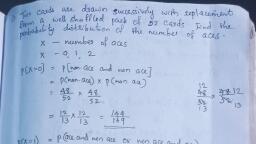 Two cards are drawn successively with replacement
from a well shuffled pack of 52 cards Find the
probability distribution of the number of aces.
X - number of aces
X - 0, 1, 2
P[X=0] = P[non ace and non ace]
= P(non ace) x P(non ace)
= 48/52 x 48/52
= 12/13 x 12/13 = 144/169
P(X=1) = P(ace and non ace or non ace and ace)